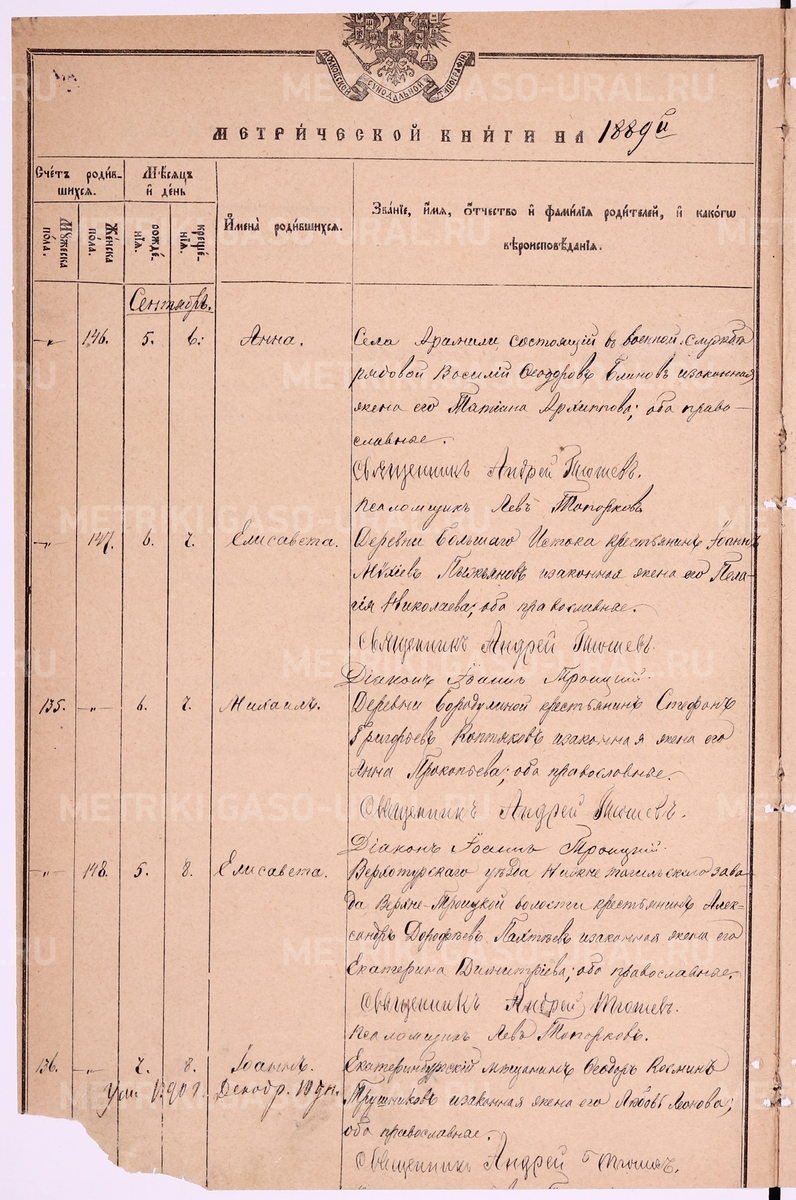 МОСКОВСКОЙ СУНОДАЛЬНОЙ ТИПОГРАФІИ.
МЕТРИЧЕСКОЙ КНИГИ НА 1889й
Счетъ родив-
шихся.
Мѣсяцъ
и день
Имена родившихся.
Званіе, имя, отчество и фамилія родителей, и какогѡ
вѣроисповѣданія.
Мужеска
пола.
Женска
пола.
рожде-
нія.
креще-
нія.
Сентябрь.
-„- 146. 5. 6. Анна. Села Арамили состоящій въ военной службѣ
рядовой Василій Ѳеодоровъ Блиновъ и законная
жена его Татіана Архиппова; оба право-
славные.
Священникъ Андрей
Псаломщикъ Левъ Топорковъ
-„- 147. 6. 7. Елисавета. Деревни Большаго Истока крестьянинъ Іоаннъ
Пыжьяновъ и законная жена его Пела-
гія Николаева; оба православные.
Священникъ Андрей
Діаконъ Іоаннъ Троицкій.
135. -„- 6. 7. Михаилъ. Деревни Бородулиной крестьянинъ Стефанъ
Григорьевъ Коптяковъ и законная жена его
Анна Прокопьева; оба православные.
Священникъ Андрей
Діаконъ Іоаннъ Троицкій.
-„- 148. 5. 8. Елисавета. Верхотурскаго уѣзда Нижнетагильскаго заво-
да Верхне-Троицкой волости крестьянинъ Алек-
сандръ Дорофѣевъ и законная жена его
Екатерина Димитріева; оба православные.
Священникъ Андрей
Псаломщикъ Левъ Топорковъ.
136. -„- 7. 8. Іоаннъ. Екатеринбужскій мѣщанинъ Ѳеодоръ Козминъ
Ум. 1890 г. Декабр. 19 дн. Трушниковъ и законная жена его Любовь Леонова;
оба православные.
Священникъ Андрей
METRIKI.GASO-URAL.RU